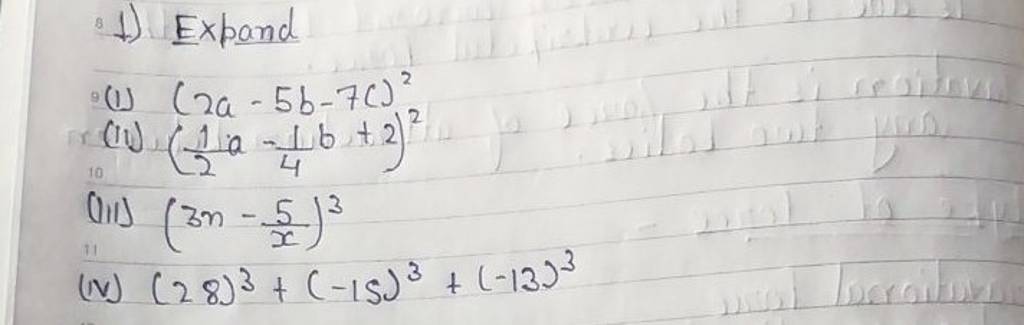 8 1) Expand
9 (i) (2a - 5b - 7c)²
(ii) (1/2 a - 1/4 b + 2)²
10
(iii) (3n - 5/x)³
11
(iv) (28)³ + (-15)³ + (-13)³